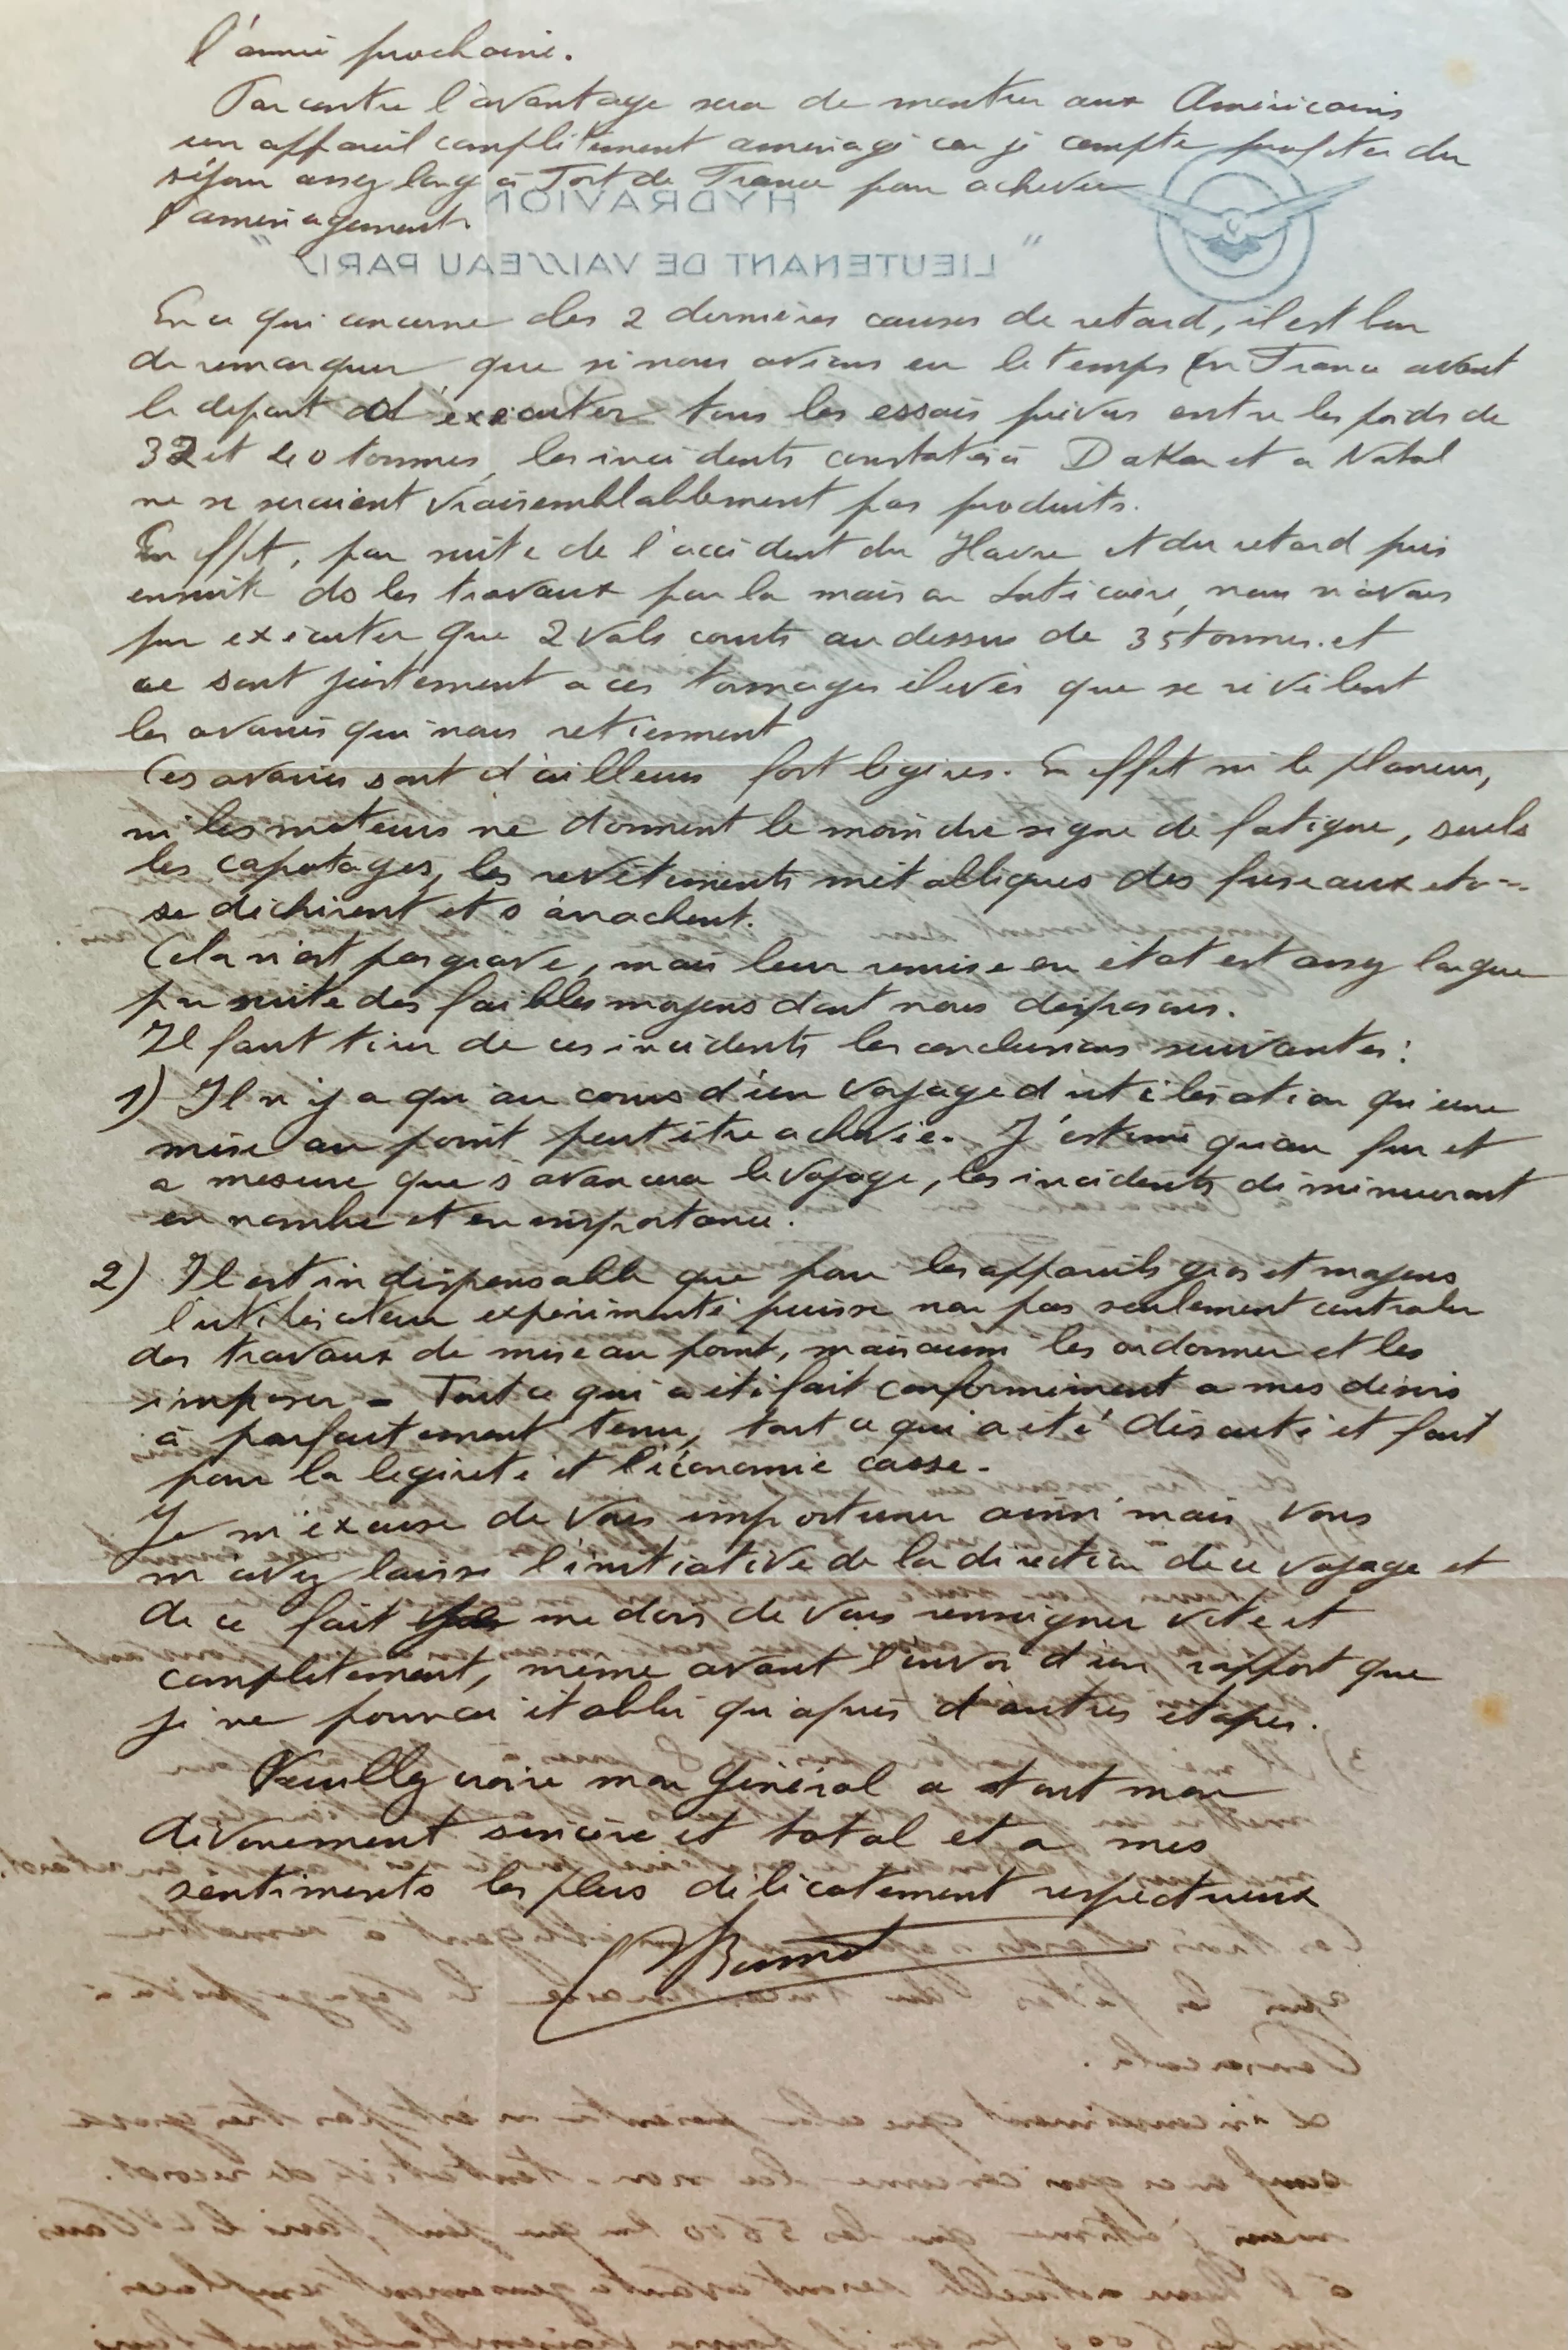 l'année prochaine.
Par contre l'avantage sera de montrer aux Américains
un appareil complètement aménagé car je compte profiter du
séjour assez long à Fort de France pour achever
l'aménagement.
HYDRAVION
"LIEUTENANT DE VAISSEAU PARIS"
En ce qui concerne les 2 dernières causes de retard, il est bon
de remarquer que si nous avions eu le temps en France avant
le départ d'exécuter tous les essais prévus entre les poids de
32 et 40 tonnes, les incidents constatés à Dakar et a Natal
ne se seraient vraisemblablement pas produits.
En effet, par suite de l'accident du Havre et du retard pris
ensuite ds les travaux par la maison Latécoère, nous n'avons
pu exécuter que 2 vols courts au dessus de 35 tonnes. et
ce sont justement a ces tonnages élevés que se révèlent
les avaries qui nous retiennent
Ces avaries sont d'ailleurs fort légères. En effet ni le planeur,
ni les moteurs ne donnent le moindre signe de fatigue, seuls
les capotages, les revêtements métalliques des fuseaux etc...
se déchirent et s'arrachent.
Cela n'est pas grave, mais leur remise en état est assez longue
par suite des faibles moyens dont nous disposons.
Il faut tirer de ces incidents les conclusions suivantes:
1) Il n'y a qu'au cours d'un voyage d'utilisation qu'une
mise au point peut être achevée. J'estime qu'au fur et
a mesure que s'avancera le voyage, les incidents diminueront
en nombre et en importance.
2) Il est indispensable que pour les appareils gros et moyens
l'utilisateur expérimenté puisse non pas seulement controler
des travaux de mise au point, mais aussi les ordonner et les
imposer - Tout ce qui a été fait conformément a mes désirs
à parfaitement tenu, tout ce qui a été discuté et fait
pour la légèreté et l'économie casse.
Je m'excuse de vous importuner ainsi mais vous
m'avez laissé l'initiative de la direction de ce voyage et
de ce fait je me dois de vous renseigner vite et
complètement, même avant l'envoi d'un rapport que
je ne pourrai établir qu'après d'autres étapes.
Veuillez croire mon Général a tout mon
dévouement sincère et total et a mes
sentiments les plus délicatement respectueux
Bonnot